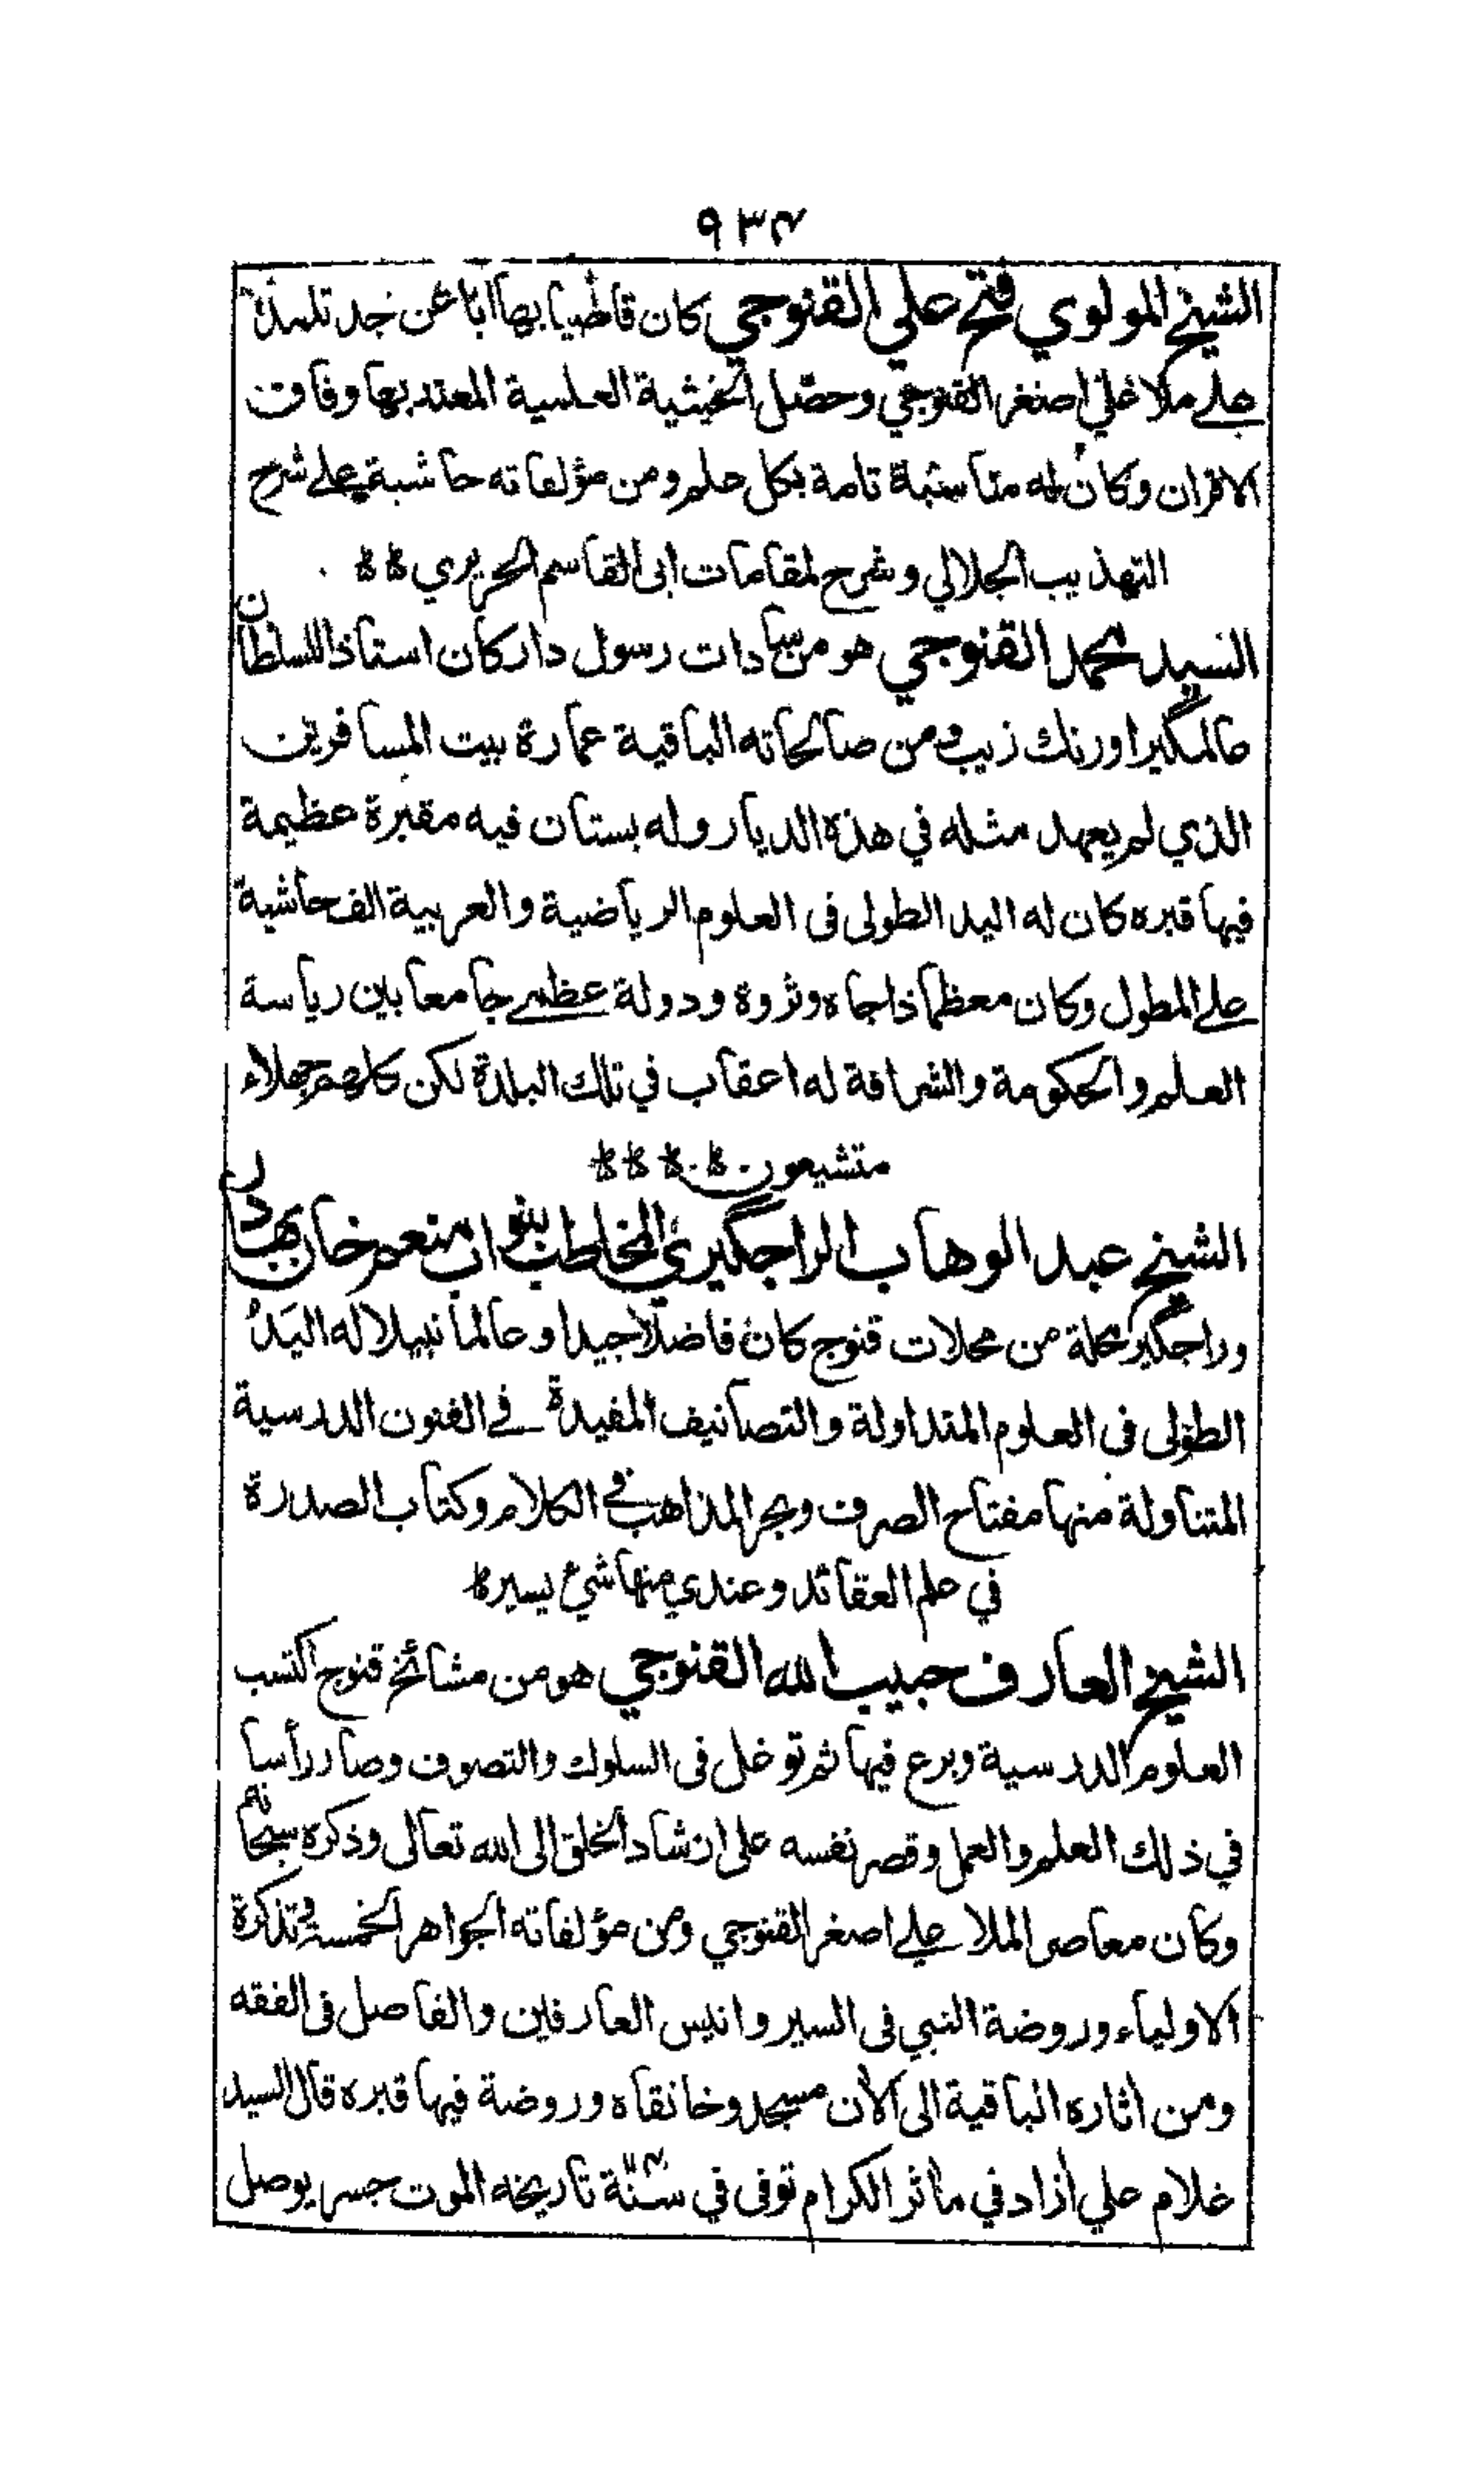 ٩٣٤
الشيخ المولوي فتح علي القنوجي كان قاطنا بها ابا عن جد تلمذ
على ملا علي اصغر القنوجي وحصل الحيثية العلمية المعتد بها وفاق
الاقران وكان له مناسبة تامة بكل علم ومن مؤلفاته حاشية على شرح
التهذيب الجلالي وشرح لمقامات ابى القاسم الحريري
السيد محمد القنوجي هو من سادات رسول دار كان استاذا للسلطان
عالمگير اورنك زيب ومن صالحاته الباقية عمارة بيت المسافرين
الذي لم يعهد مثله في هذه الديار وله بستان فيه مقبرة عظيمة
فيها قبره كان له اليد الطولى فى العلوم الرياضية والعربية الف حاشية
على المطول وكان معظما ذا جاه وثروة ودولة عظمى جامعا بين رياسة
العلم والحكومة والشرافة له اعقاب في تلك البلدة لكن كلهم جهلاء
متشيعون
الشيخ عبد الوهاب الراجگيري المخاطب بنواب منعم خان بهادر
وراجگير محلة من محلات قنوج كان فاضلا جيدا وعالما نبيلا له اليَدُ
الطولى فى العلوم المتداولة والتصانيف المفيدة في الفنون الدرسية
المتناولة منها مفتاح الصرف وبحر المذاهب في الكلام وكتاب الصدرة
في علم العقائد وعندي منها شيء يسير
الشيخ العارف حبيب الله القنوجي هو من مشائخ قنوج اكتسب
العلوم الدرسية وبرع فيها ثم توغل فى السلوك والتصوف وصار رأسا
في ذلك العلم والعمل وقصر نفسه على ارشاد الخلق الى الله تعالى وذكره سبحانه
وكان معاصر الملا علي اصغر القنوجي ومن مؤلفاته الجواهر الخمسة في تذكرة
الاولياء وروضة النبي فى السير وانيس العارفين والفاصل فى الفقه
ومن اثاره الباقية الى الآن مسجد وخانقاه وروضة فيها قبره قال السيد
غلام علي أزاد في مأثر الكرام توفى في سنة تاريخه الموت جسر يوصل